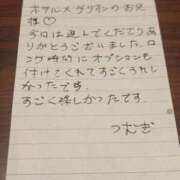 ホテルメグリオンのお兄
様♡
今日は選んでくださりあ
りがとうございました。ロ
ング時間にオプションも
付けてくれてすごくうれし
かったです。
すごく楽しかったです。
つむぎ